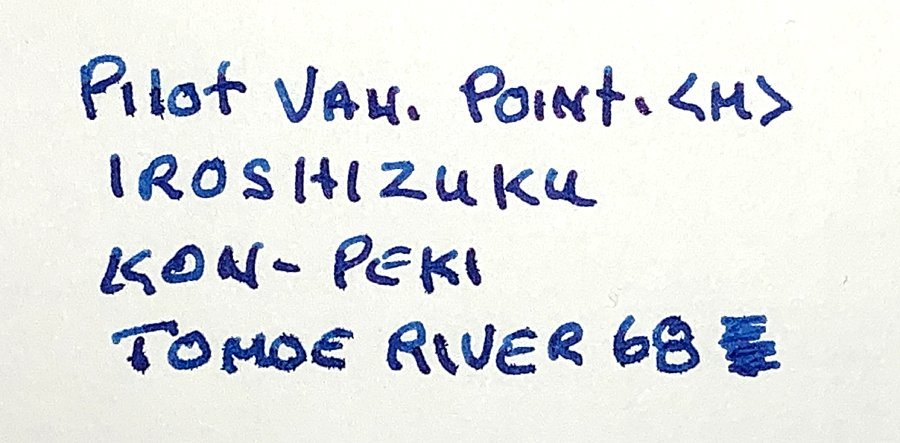 Pilot VAN. POINT. <M>
IROSHIZUKU
KON-PEKI
TOMOE RIVER 68